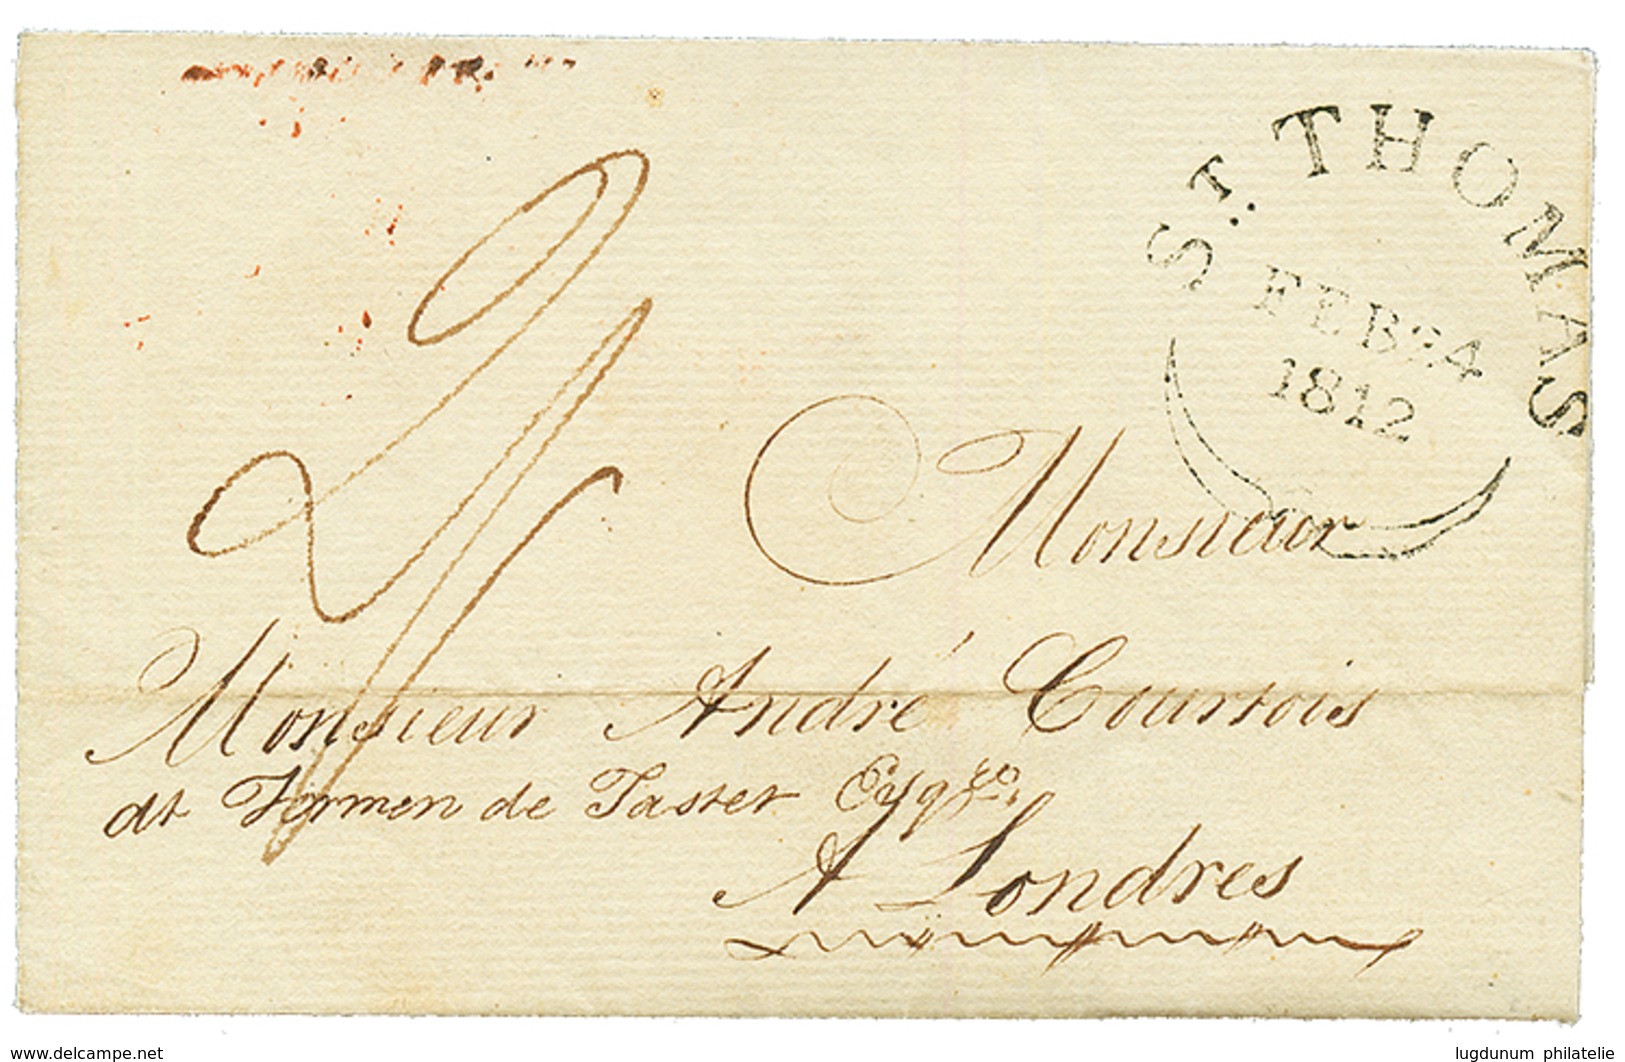 PR.
St. THOMAS
FEB 24
1812
2/
Monsieur
Monsieur André Courtois
at Hermen de Taster Esqres.
A Londres
www.delcampe.net
lugdunum philatelie